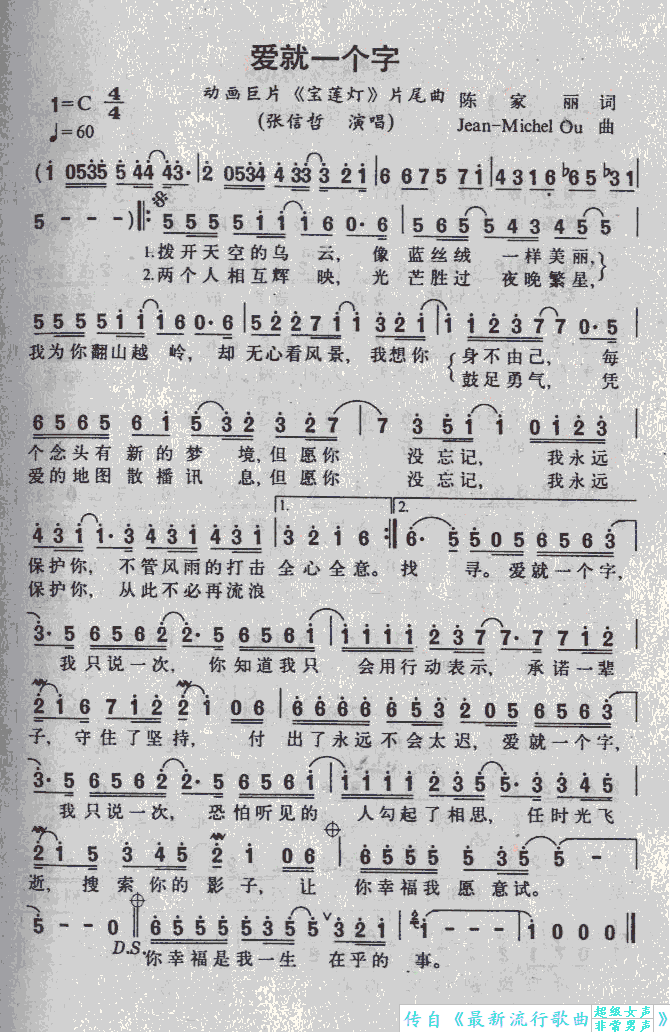 爱就一个字
动画巨片《宝莲灯》片尾曲 陈家丽 词
1=C 4/4
♩=60
(张信哲 演唱) Jean-Michel Ou 曲
(1 0535 5 44 43· | 2 0534 4 33 3 2 1 | 6 6 7 5 7 1 | 4 3 1 6 ♭6 5 ♭3 1
5 - - -) ‖: 5 5 5 5 1 1 1 6 0· 6 | 5 6 5 5 4 3 4 5 5
1.拨开天空的乌云, 像蓝丝绒 一样美丽,
2.两个人相互辉映, 光芒胜过 夜晚繁星,
5 5 5 5 1 1 1 6 0· 6 | 5 2 2 7 1 1 3 2 1 | 1 1 2 3 7 7 0· 5
我为你翻山越岭, 却无心看风景, 我想你 身不由己, 每
鼓足勇气, 凭
6 5 6 5 6 1 5 3 2 3 2 7 | 7 3 5 1 1 0 1 2 3
个念头有新的梦境,但愿你 没忘记, 我永远
爱的地图散播讯息,但愿你 没忘记, 我永远
1. 2.
4 3 1 1· 3 4 3 1 4 3 1 | 3 2 1 6 :‖ 6· 5 5 0 5 6 5 6 3
保护你, 不管风雨的打击 全心全意。 找寻。爱就一个字,
保护你, 从此不必再流浪
3· 5 6 5 6 2 2· 5 6 5 6 1 | 1 1 1 1 2 3 7 7· 7 7 1 2
我只说一次, 你知道我只 会用行动表示, 承诺一辈
2 1 6 7 1 2 2 1 0 6 | 6 6 6 6 6 5 3 2 0 5 6 5 6 3
子, 守住了坚持, 付出了永远不会太迟, 爱就一个字,
3· 5 6 5 6 2 2· 5 6 5 6 1 | 1 1 1 1 2 3 5 5· 3 3 4 5
我只说一次, 恐怕听见的 人勾起了相思, 任时光飞
2 1 5 3 4 5 2 1 0 6 | 6 5 5 5 5 3 5 5 -
逝, 搜索你的影子, 让 你幸福我愿意试。
5 - - 0 ‖ 6 5 5 5 5 3 5 5 ∨ 3 2 1 | 1 - - - | 1 0 0 0 ‖
D.S. 你幸福是我一生 在乎的事。
传自《最新流行歌曲 超级女声 非常男声》